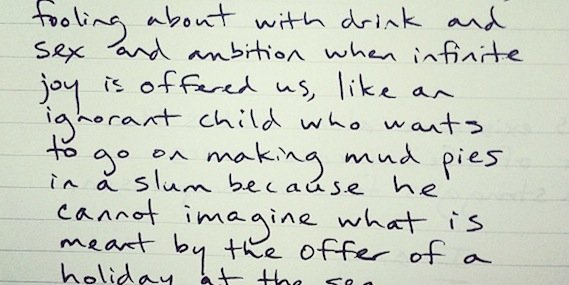 fooling about with drink and
sex and ambition when infinite
joy is offered us, like an
ignorant child who wants
to go on making mud pies
in a slum because he
cannot imagine what is
meant by the offer of a
holiday at the sea